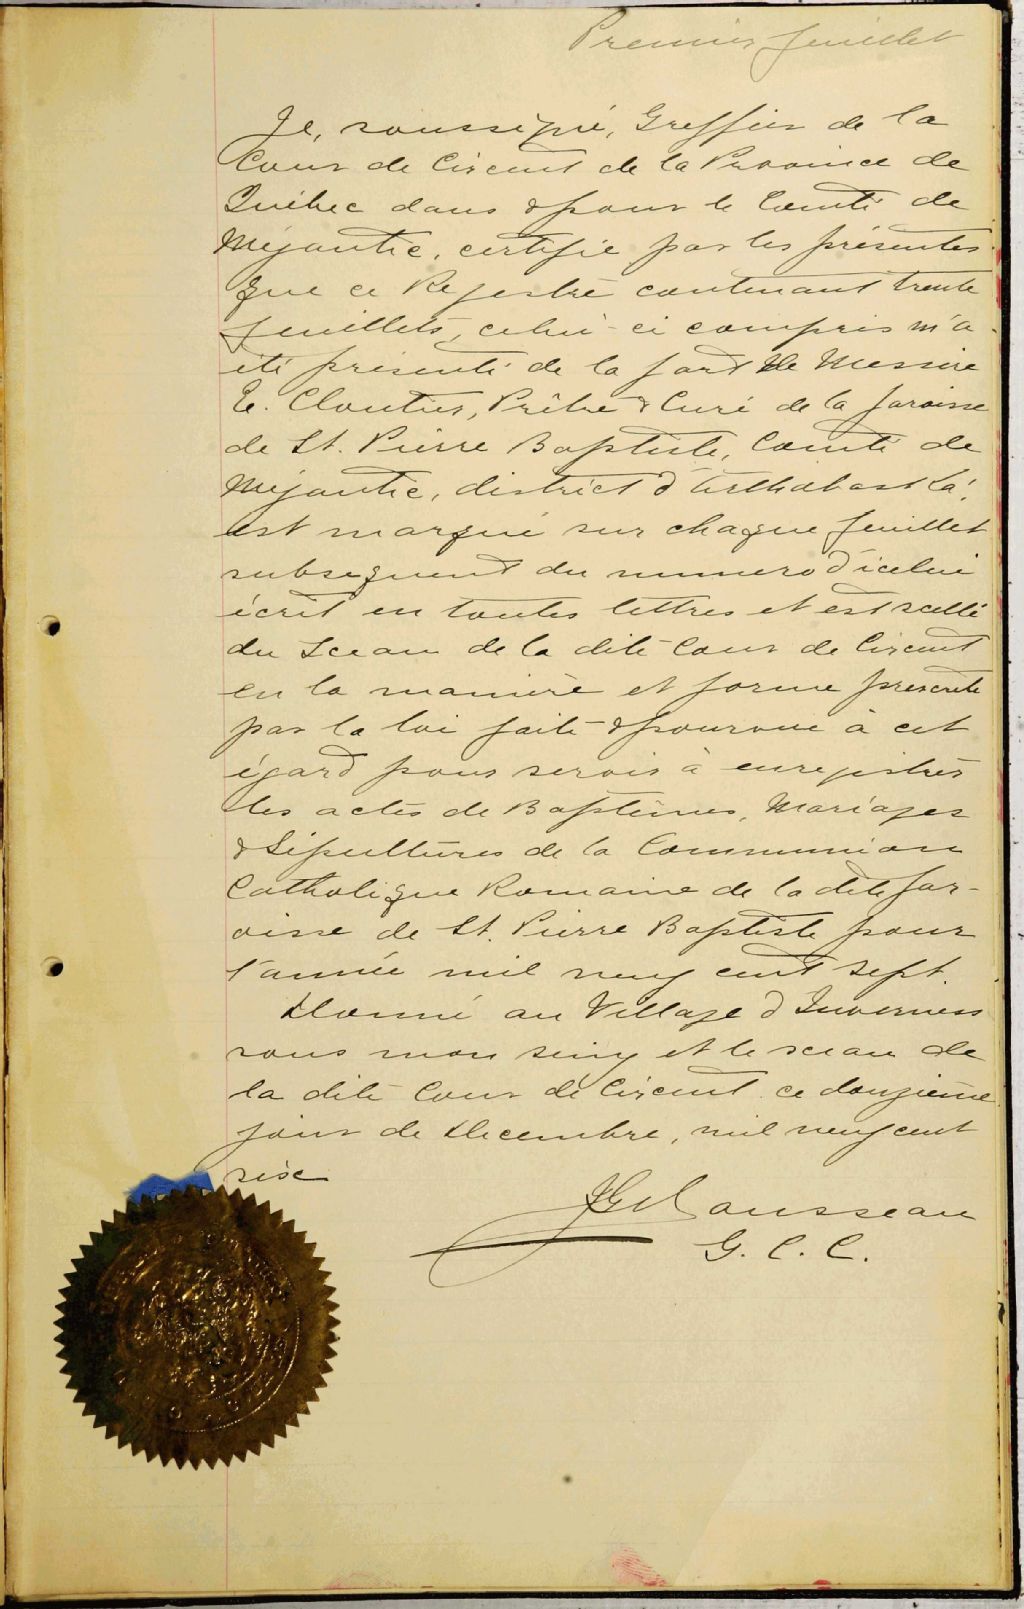 Premier feuillet
Je, soussigné, Greffier de la
Cour de Circuit de la Province de
Québec dans & pour le Comté de
Mégantic, certifie par les présentes
que ce Registre contenant trente
feuillets, celui-ci compris m'a
été présenté de la part de Messire
E. Cloutier, Prêtre & Curé de la paroisse
de St. Pierre Baptiste, Comté de
Mégantic, district d'Arthabaska,
est marqué sur chaque feuillet
subsequent du numero d'icelui
écrit en toutes lettres et est scellé
du Sceau de la dite Cour de Circuit
en la manière et forme prescrite
par la loi faite & pourvue à cet
égard pour servir à enregistrer
les actes de Baptêmes, Mariages
& Sépultures de la Communion
Catholique Romaine de la dite par-
oisse de St. Pierre Baptiste pour
l'année mil neuf cent sept.
Donné au Village d'Inverness
sous mon seing et le sceau de
la dite Cour de Circuit ce douzième
jour de Decembre, mil neuf cent
six
Rousseau
G. C. C.